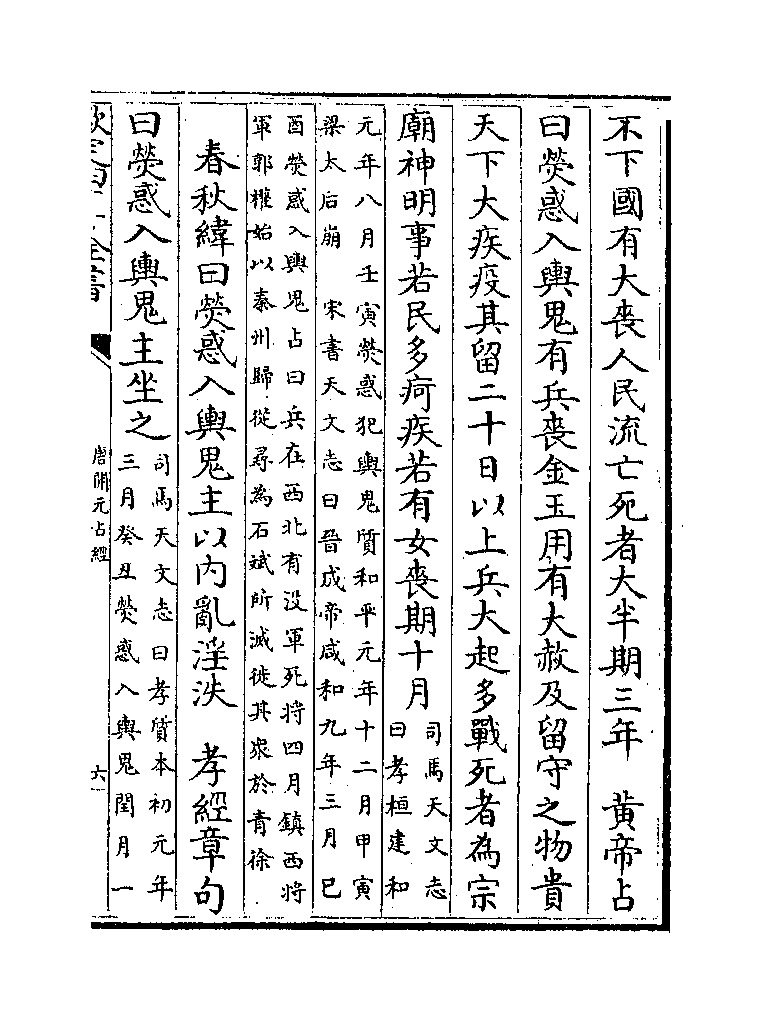 不下國有大喪人民流亡死者大半期三年　黄帝占
曰熒惑入輿鬼有兵喪金玉用有大赦及留守之物貴
天下大疾疫其留二十日以上兵大起多戰死者為宗
廟神明事若民多疴疾若有女喪期十月
司馬天文志
曰孝桓建和
元年八月壬寅熒惑犯輿鬼質和平元年十二月甲寅
梁太后崩　宋書天文志曰晉成帝咸和九年三月已
酉熒惑入輿鬼占曰兵在西北有没軍死將四月鎮西將
軍郭權始以秦州歸從尋為石斌所滅徙其衆於青徐
春秋緯曰熒惑入輿鬼主以内亂淫泆　孝經章句
曰熒惑入輿鬼主坐之
司馬天文志曰孝質本初元年
三月癸丑熒惑入輿鬼閏月一
欽定四庫全書
唐開元占經
六